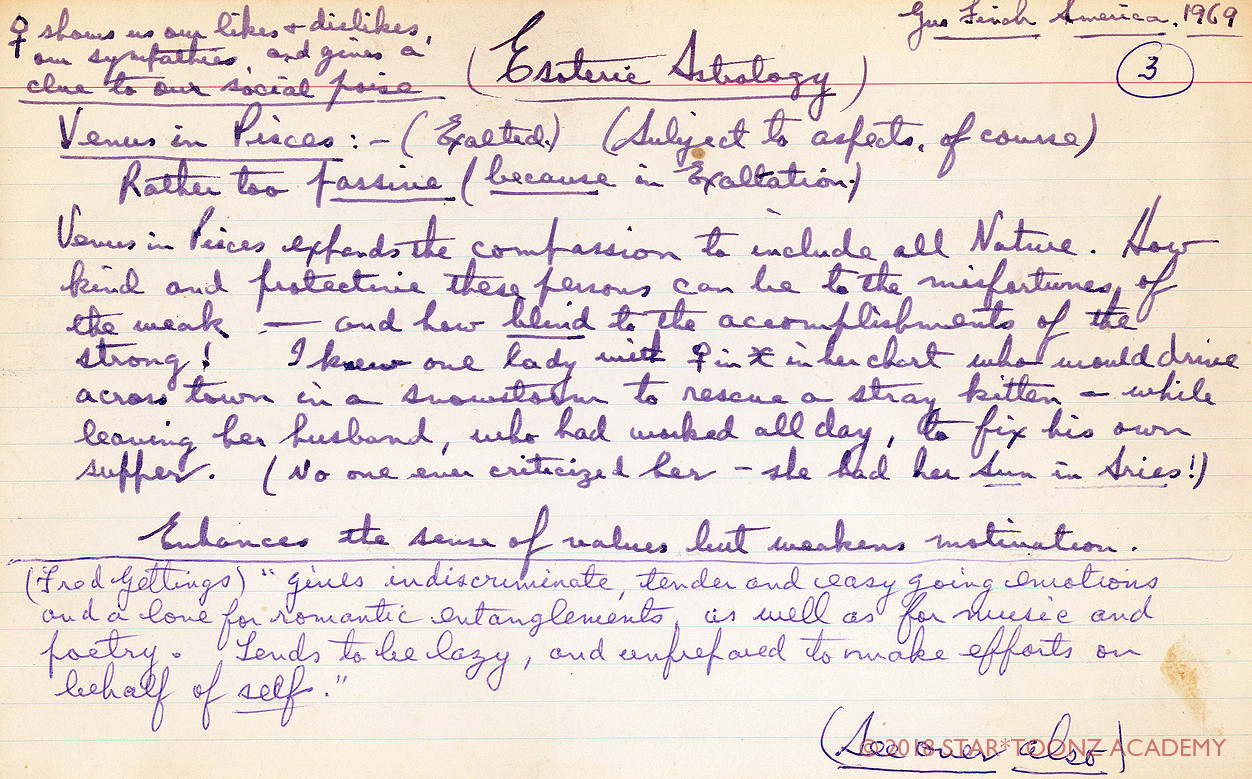 ♀ shows us our likes & dislikes,
our sympathies, and gives a
clue to our social poise
Gus Finch America. 1969
(Esoteric Astrology)
3
Venus in Pisces:- (Exalted.) (Subject to aspects, of course)
Rather too passive (because in Exaltation.)
Venus in Pisces expands the compassion to include all Nature. How
kind and protective these persons can be to the misfortunes of
the weak — and how blind to the accomplishments of the
strong! I knew one lady with ♀ in ♓ in her chart who would drive
across town in a snowstorm to rescue a stray kitten - while
leaving her husband, who had worked all day, to fix his own
supper. (No one ever criticized her - she had her Sun in Aries!)
Enhances the sense of values but weakens motivation.
(Fred Gettings) "gives indiscriminate, tender and easy going emotions
and a love for romantic entanglements, as well as for music and
poetry. Tends to be lazy, and unprepared to make efforts on
behalf of self."
(See over also)
© 2018 STAR*TOONZ ACADEMY